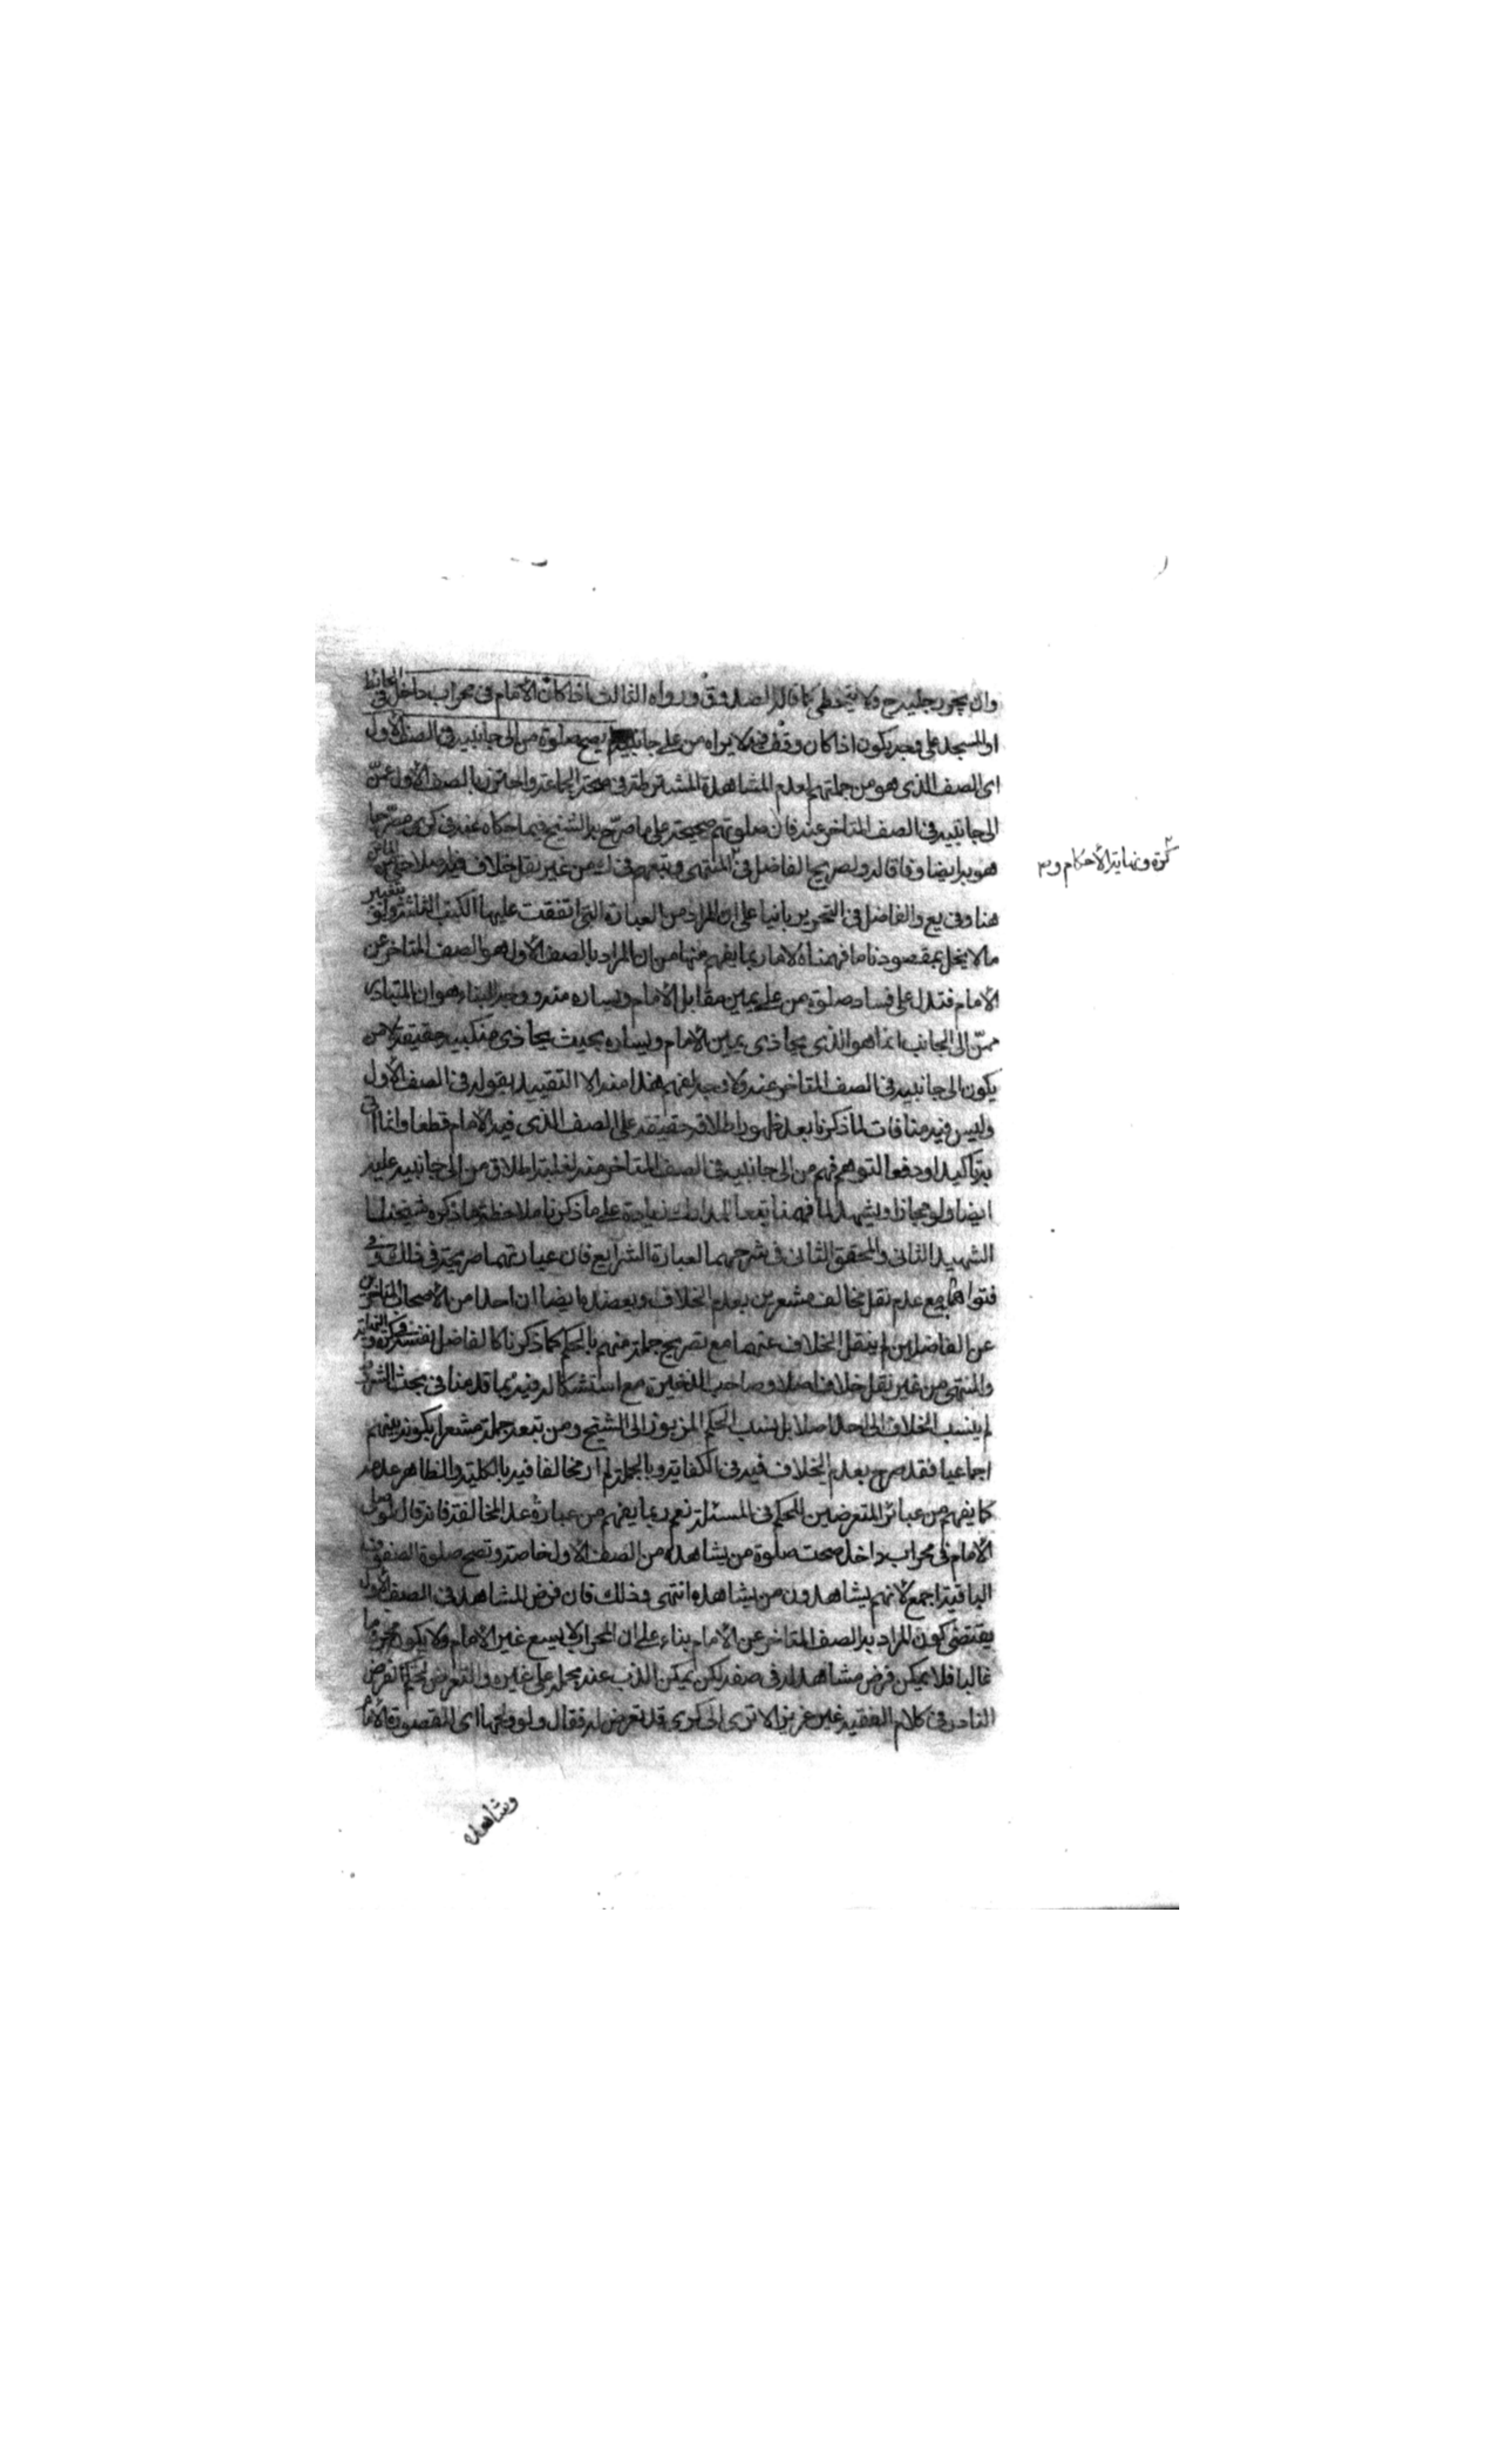 وان يجر رجليه ح ولا يتخطى كما قاله الصدوق ورواه الثالث اذا كان الامام فى محراب داخل فى الحائط
او المسجد على وجه يكون اذا كان وقف فيه لا يراه من على جانبيه لم يصح صلوة من الى جانبيه فى الصف الاول
اى الصف الذى هو من جملتهم لعدم المشاهدة المشترطة فى صحة الجماعة واحترز بالصف الاول عمن
الى جانبيه فى الصف المتاخر عنه فان صلوتهم صحيحة على ما صرح به الشيخ فيما حكاه عنه فى كرى مصرحا
هو به ايضا وفاقا له ولصريح الفاضل فى المنتهى وتبعهم فى ك من غير نقل خلاف فيه اصلا
كرة ونهاية الاحكام وم
هنا وفى يع والفاضل فى التحرير بانيا على ان المراد من العبارة التى اتفقت عليها الكتب الثلثة
ما لا يخل بمقصودنا ما فهمناه لا ما ربما يفهم منها من ان المراد بالصف الاول هو الصف المتاخر عن
الامام فتدل على فساد صلوة من على يمين مقابل الامام ويساره منه ووجه البناء هو ان المتبادر
ممن الى الجانب انما هو الذى يحاذى يمين الامام ويساره بحيث يحاذى منكبيه حقيقة لا من
يكون الى جانبيه فى الصف المتاخر عنه ولا وجه لفهم هذا منه الا التقييد بقوله فى الصف الاول
وليس فيه منافات لما ذكرنا بعد ظهور اطلاقه حقيقة على الصف الذى فيه الامام قطعا وانما اتى
به تاكيدا ودفعا لتوهم فهم من الى جانبيه فى الصف المتاخر منه لغلبة اطلاق من الى جانبيه عليه
ايضا ولو مجازا ويشهد لما فهمنا تبعا للمدارك زيادة على ما ذكرنا ملاحظة ما ذكره شيخنا
الشهيد الثانى والمحقق الثانى فى شرحهما لعبارة الشرايع فان عبارتهما صريحة فى ذلك وفى
فتواهما مع عدم نقل مخالف مشعرين بعدم الخلاف ويعضده ايضا ان احدا من الاصحاب المتاخرين
عن الفاضلين لم ينقل الخلاف عنهما مع تصريح جملة منهم بالحكم كما ذكرنا كالفاضل نفسه فى كره والنهاية
والمنتهى من غير نقل خلاف اصلا وصاحب الذخيرة مع استشكاله فيه بما قدمنا فى بحث الشرط
لم ينسب الخلاف الى احد اصلا بل نسب الحكم المزبور الى الشيخ ومن تبعه جملة مشعرا بكونه بينهم
اجماعيا فقد صرح بعدم الخلاف فيه فى الكفاية وبالجملة لم ار مخالفا فيه بالكلية والظاهر عدمه
كما يفهم من عبائر المتعرضين للحكم فى المسئلة نعم ربما يفهم من عبارة عد المخالفة فانه قال لو صلى
الامام فى محراب داخل صحت صلوة من يشاهده من الصف الاول خاصة وتصح صلوة الصفوف
الباقية اجمع لانهم يشاهدون من يشاهده انتهى وذلك فان فرض المشاهد فى الصف الاول
يقتضى كون المراد به الصف المتاخر عن الامام بناء على ان المحراب لا يسع غير الامام ولا يكون
غالبا فلا يمكن فرض مشاهد له فى صفه لكن يمكن الذب عنه بحمله على غيره والتعرض لحكم الفرض
النادر فى كلام الفقيه غير عزيز الا ترى الى كرى قد تعرض له فقال ولو ولجها اى المقصورة الامام
وشاهده